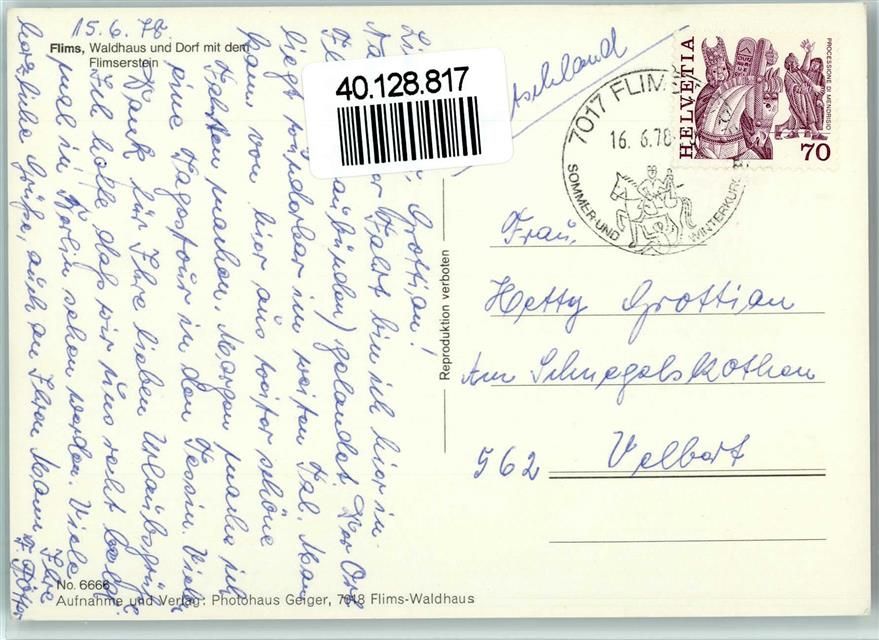 15.6.78
Flims, Waldhaus und Dorf mit dem
Flimserstein
Grottian!
Na der Fahrt bin ich hier in
aubünden) gelandet. Der Ort
liegt wunderbar im weiten Tal. Man
kann von hier aus weiter schöne
Fahrten machen. Morgen mache ich
eine Tagestour in den Tessin. Vielen
Dank für Ihre lieben Urlaubsgrüße
Ich hoffe, daß wir uns recht bald
mal in Berlin sehen werden. Viele
herzliche Grüße, auch an Ihren Mann
Ihre
40.128.817
Deutschland
7017 FLIMS
16.6.78
SOMMER- UND WINTERKUR
HELVETIA
PROCESSIONE DI MENDRISIO
70
Reproduktion verboten
Frau
Hetty Grottian
Am Schnegelskothen
562 Velbert
No. 6666
Aufnahme und Verlag: Photohaus Geiger, 7018 Flims-Waldhaus